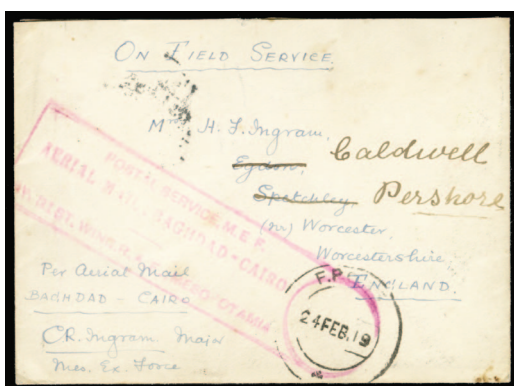 ON FIELD SERVICE
Mrs H. F. Ingram,
Eydon,
Caldwell
Spetchley,
Pershore
(nr) Worcester
Worcestershire
ENGLAND.
POSTAL SERVICE, M.E.F.
AERIAL MAIL, BAGHDAD-CAIRO
MESOPOTAMIA
Per Aerial Mail
BAGHDAD - CAIRO
C.R. Ingram Major
Mes. Ex. Force
F.P.
24 FEB.19